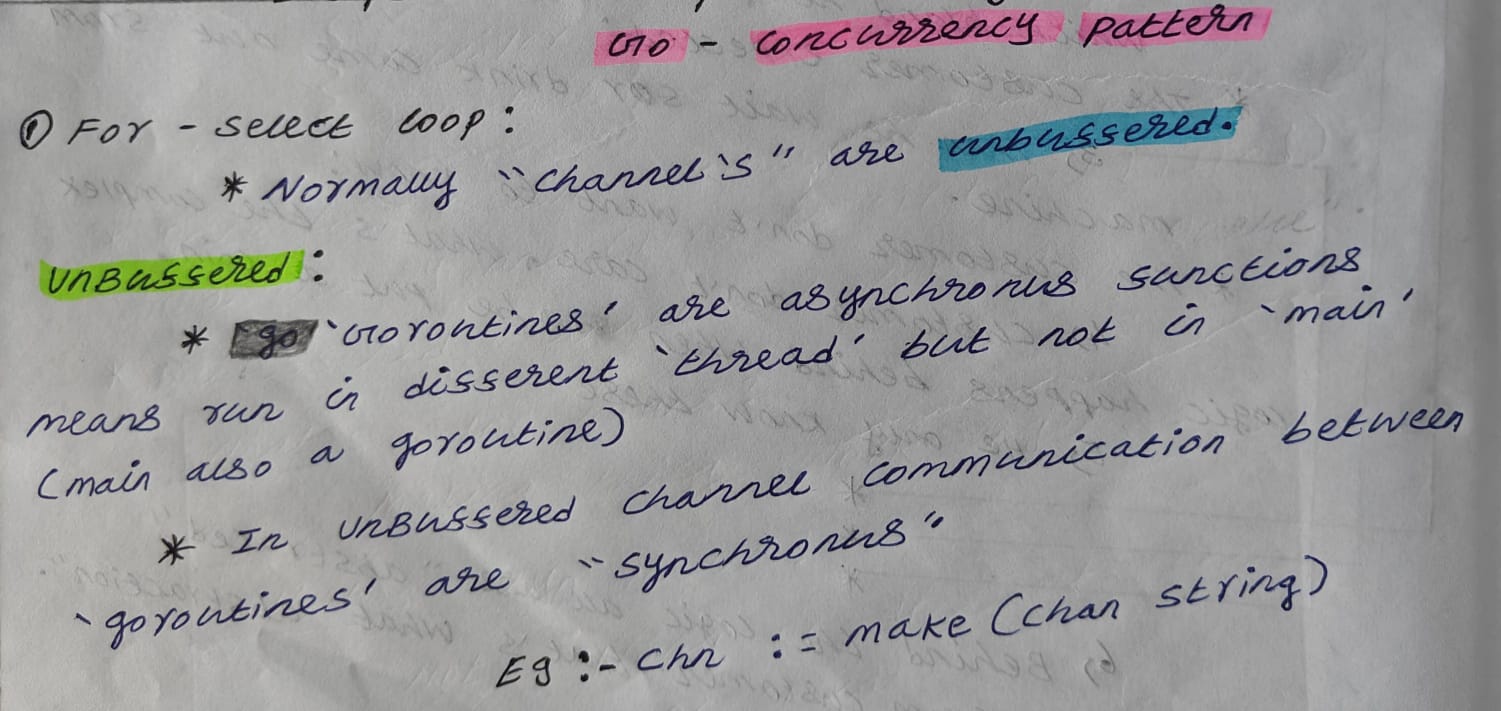 Go - Concurrency Pattern
① For - select loop :
* Normally "channel's" are unbuffered.
UnBuffered :
* go 'Goroutines' are asynchronus functions
means run in different 'thread' but not in 'main'
(main also a goroutine)
* In UnBuffered channel communication between
'goroutines' are "synchronus"
Eg :- chn := make (chan string)